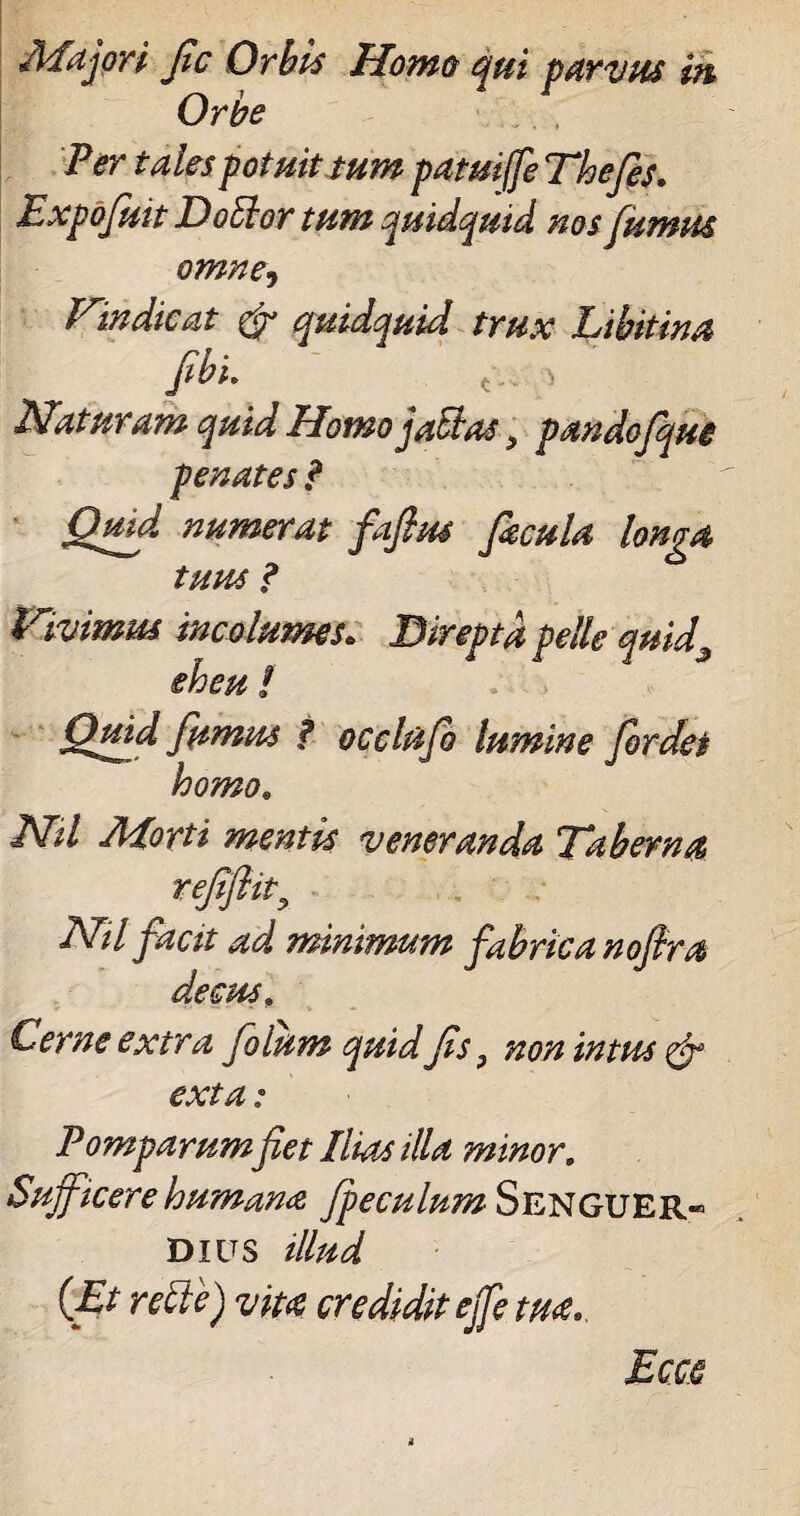 Majori ſic Orbis Homo qui parvus in
Orbe
Per tales potuit tum patuiſſe Theſes.
Expoſuit Doctor tum quidquid nos ſumus
omne,
Vindicat & quidquid trux Libitina
ſibi.
Naturam quid Homo jactas, pandoſque
penates?
Quid numerat faſtus ſæcula longa
tuus?
Vivimus incolumes. Direptâ pelle quid,
eheu!
Quid ſumus? occluſo lumine ſordet
homo.
Nil Morti mentis veneranda Taberna
reſiſtit,
Nil facit ad minimum fabrica noſtra
decus.
Cerne extra ſolùm quid ſis, non intus &
exta:
Pomparum fiet Ilias illa minor.
Sufficere humanæ ſpeculum SENGUER-
DIUS illud
(Et rectè) vitæ credidit eſſe tuæ.
Ecce